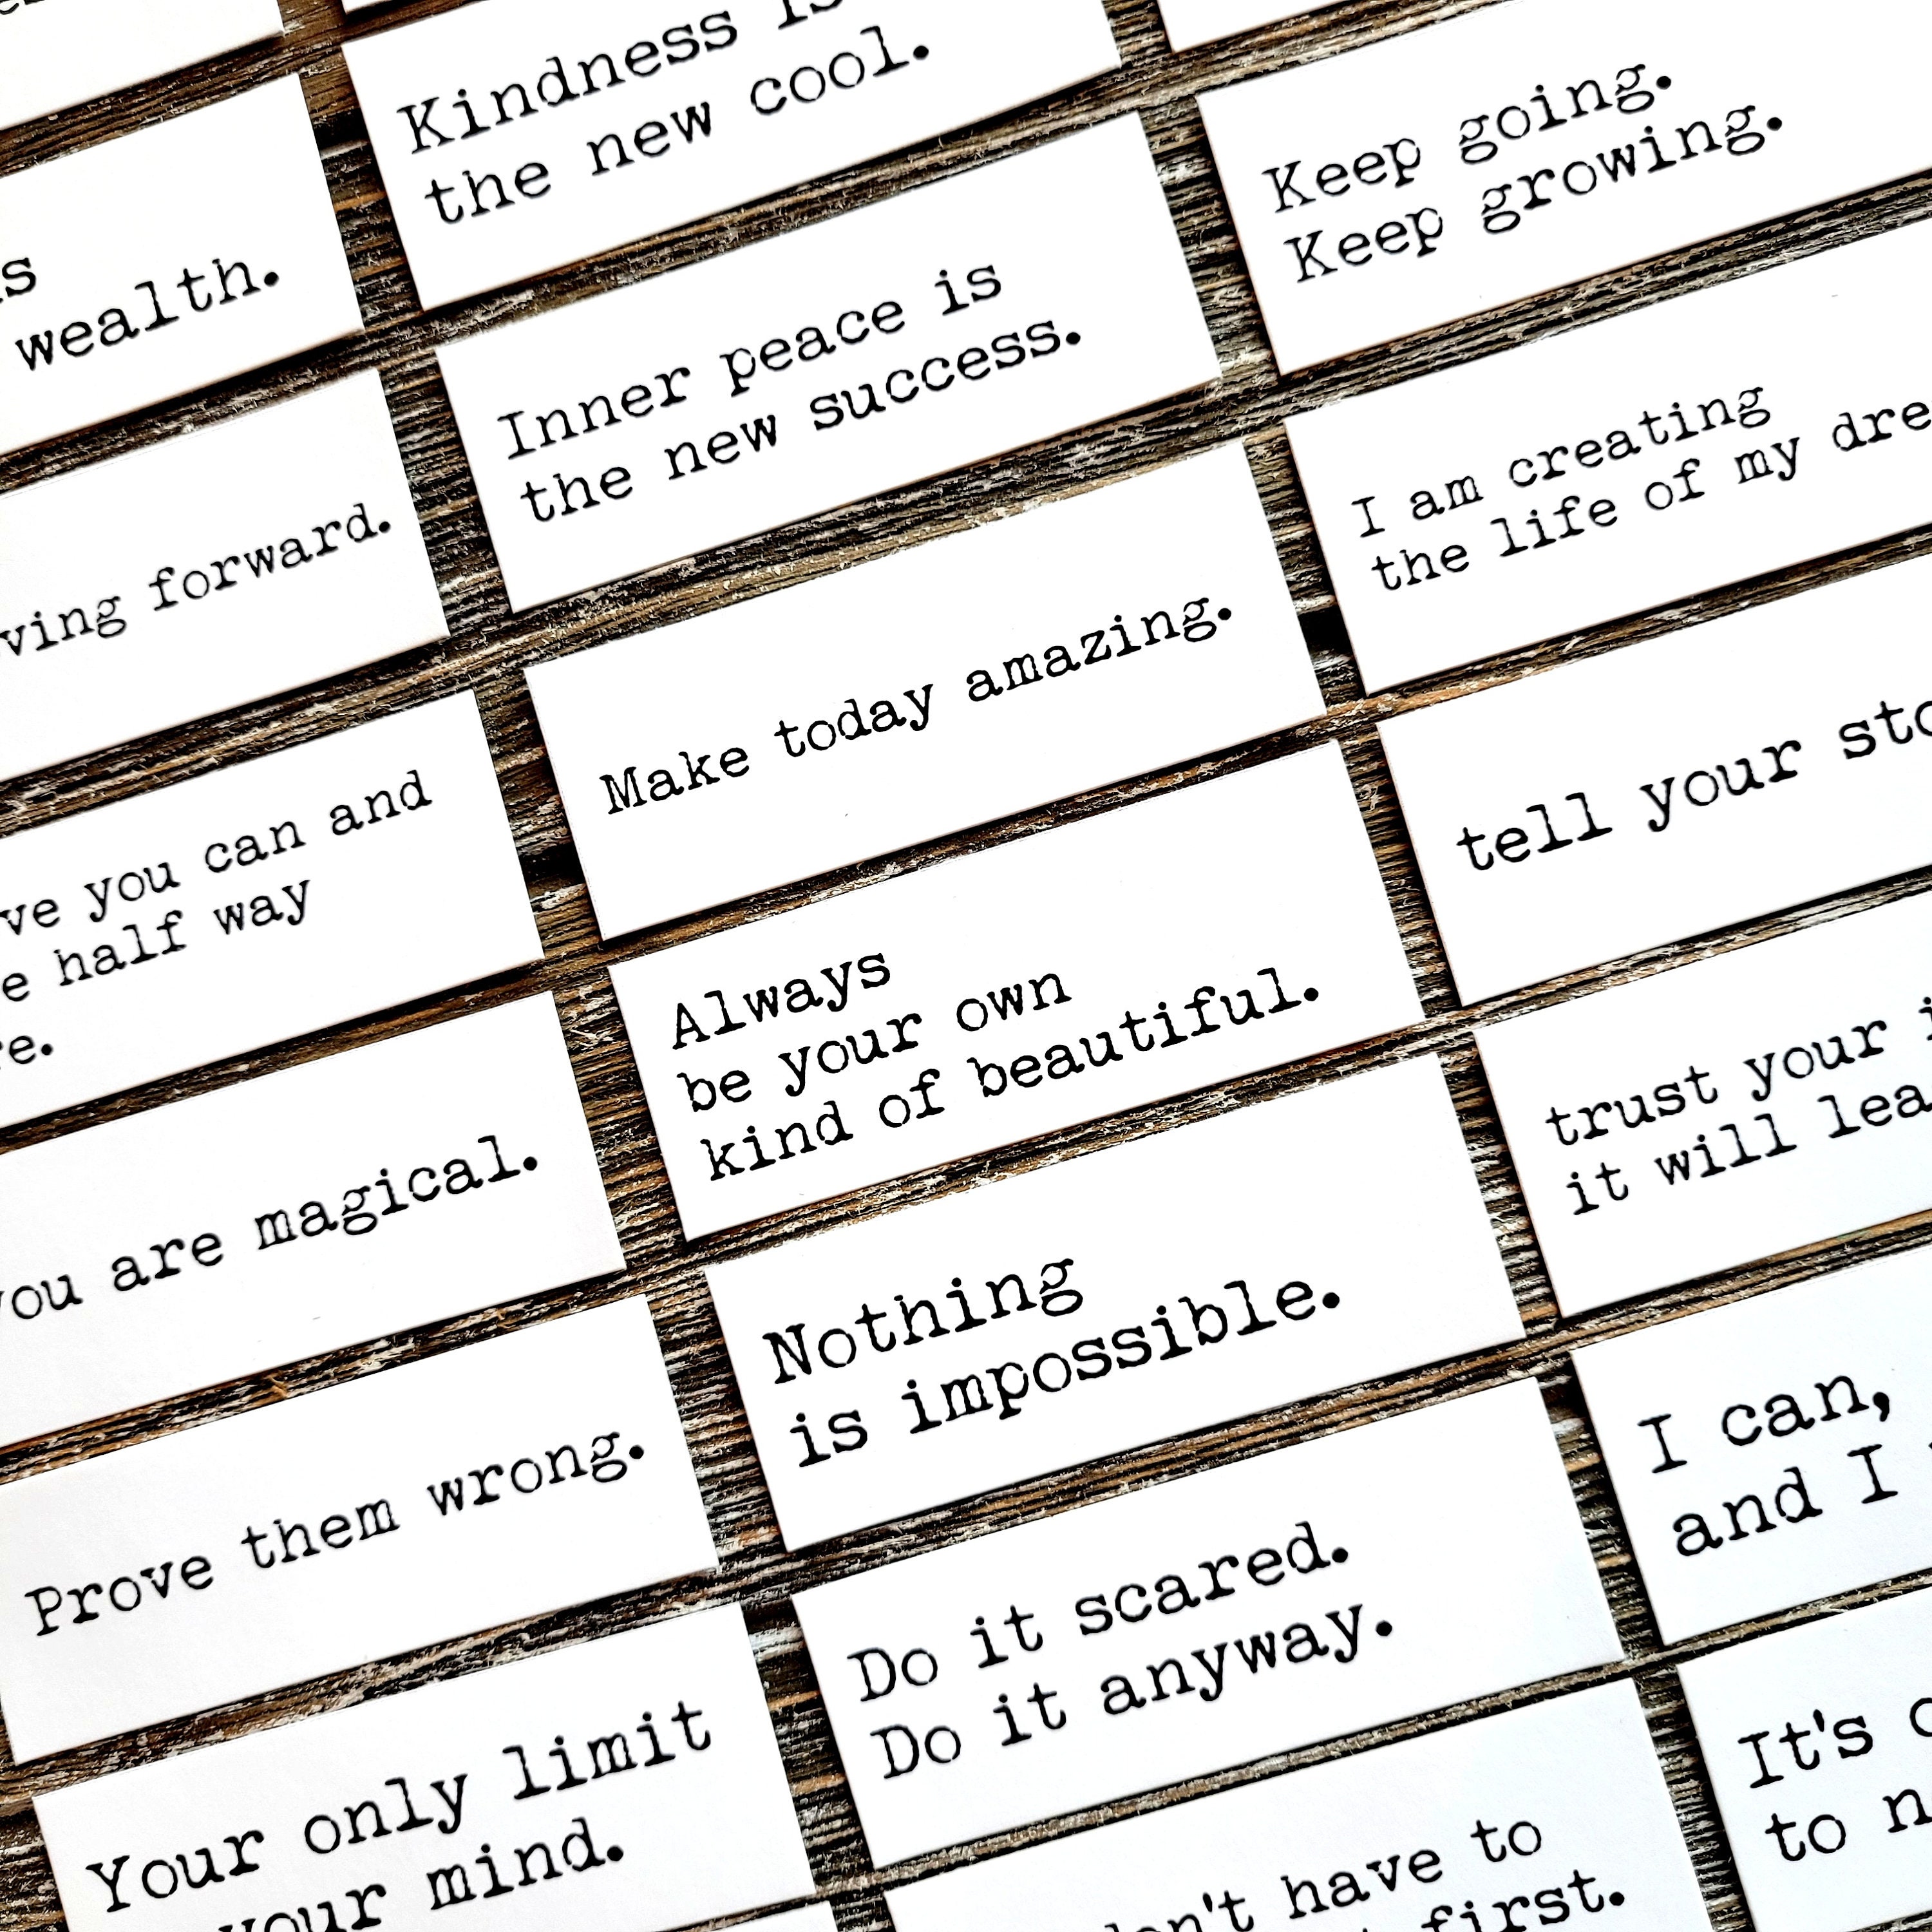 wealth.
forward.
you can and
half way
you are magical.
Prove them wrong.
Your only limit
your mind.
Kindness is
the new cool.
Inner peace is
the new success.
Make today amazing.
Always
be your own
kind of beautiful.
Nothing
is impossible.
Do it scared.
Do it anyway.
have to
first.
Keep going.
Keep growing.
I am creating
the life of my
tell your
trust your
it will
I can,
and I
It's
to